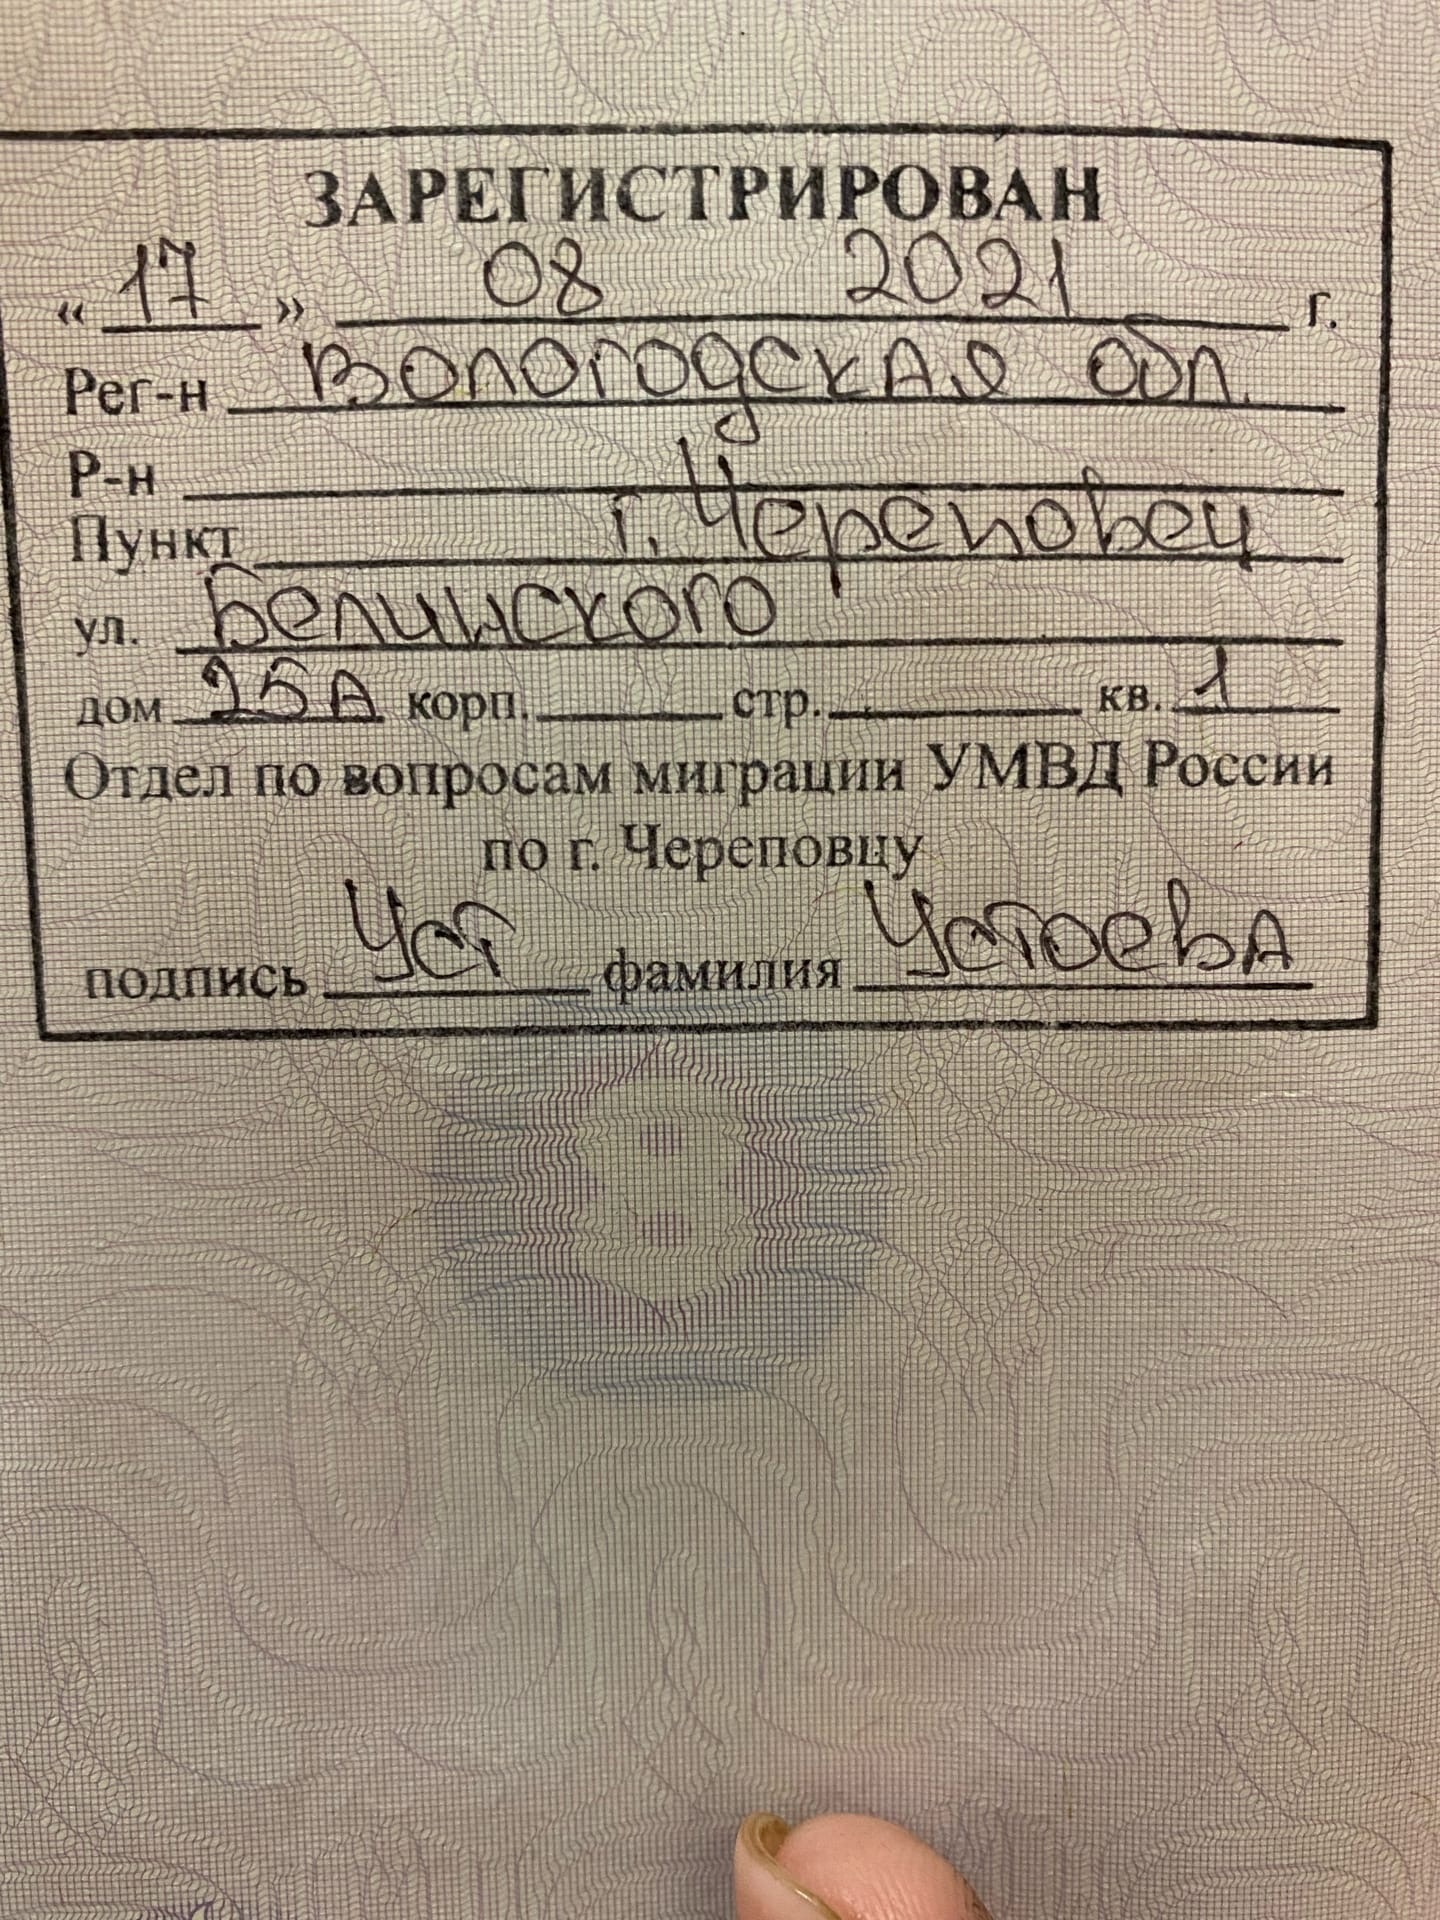 ЗАРЕГИСТРИРОВАН
« 17 » 08 2021 г.
Рег-н Вологодская обл.
Р-н
Пункт г. Череповец
ул. Белинского
дом 25А корп. стр. кв. 1
Отдел по вопросам миграции УМВД России
по г. Череповцу
подпись Уст фамилия Устоева